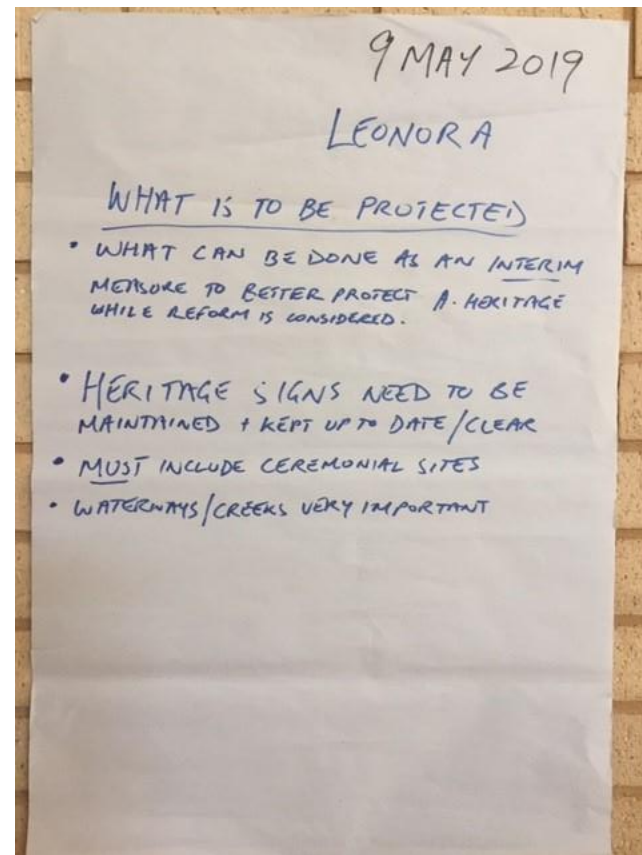 9 MAY 2019
LEONORA
WHAT IS TO BE PROTECTED
• WHAT CAN BE DONE AS AN INTERIM
MEASURE TO BETTER PROTECT A. HERITAGE
WHILE REFORM IS CONSIDERED.
• HERITAGE SIGNS NEED TO BE
MAINTAINED + KEPT UP TO DATE/CLEAR
• MUST INCLUDE CEREMONIAL SITES
• WATERWAYS/CREEKS VERY IMPORTANT